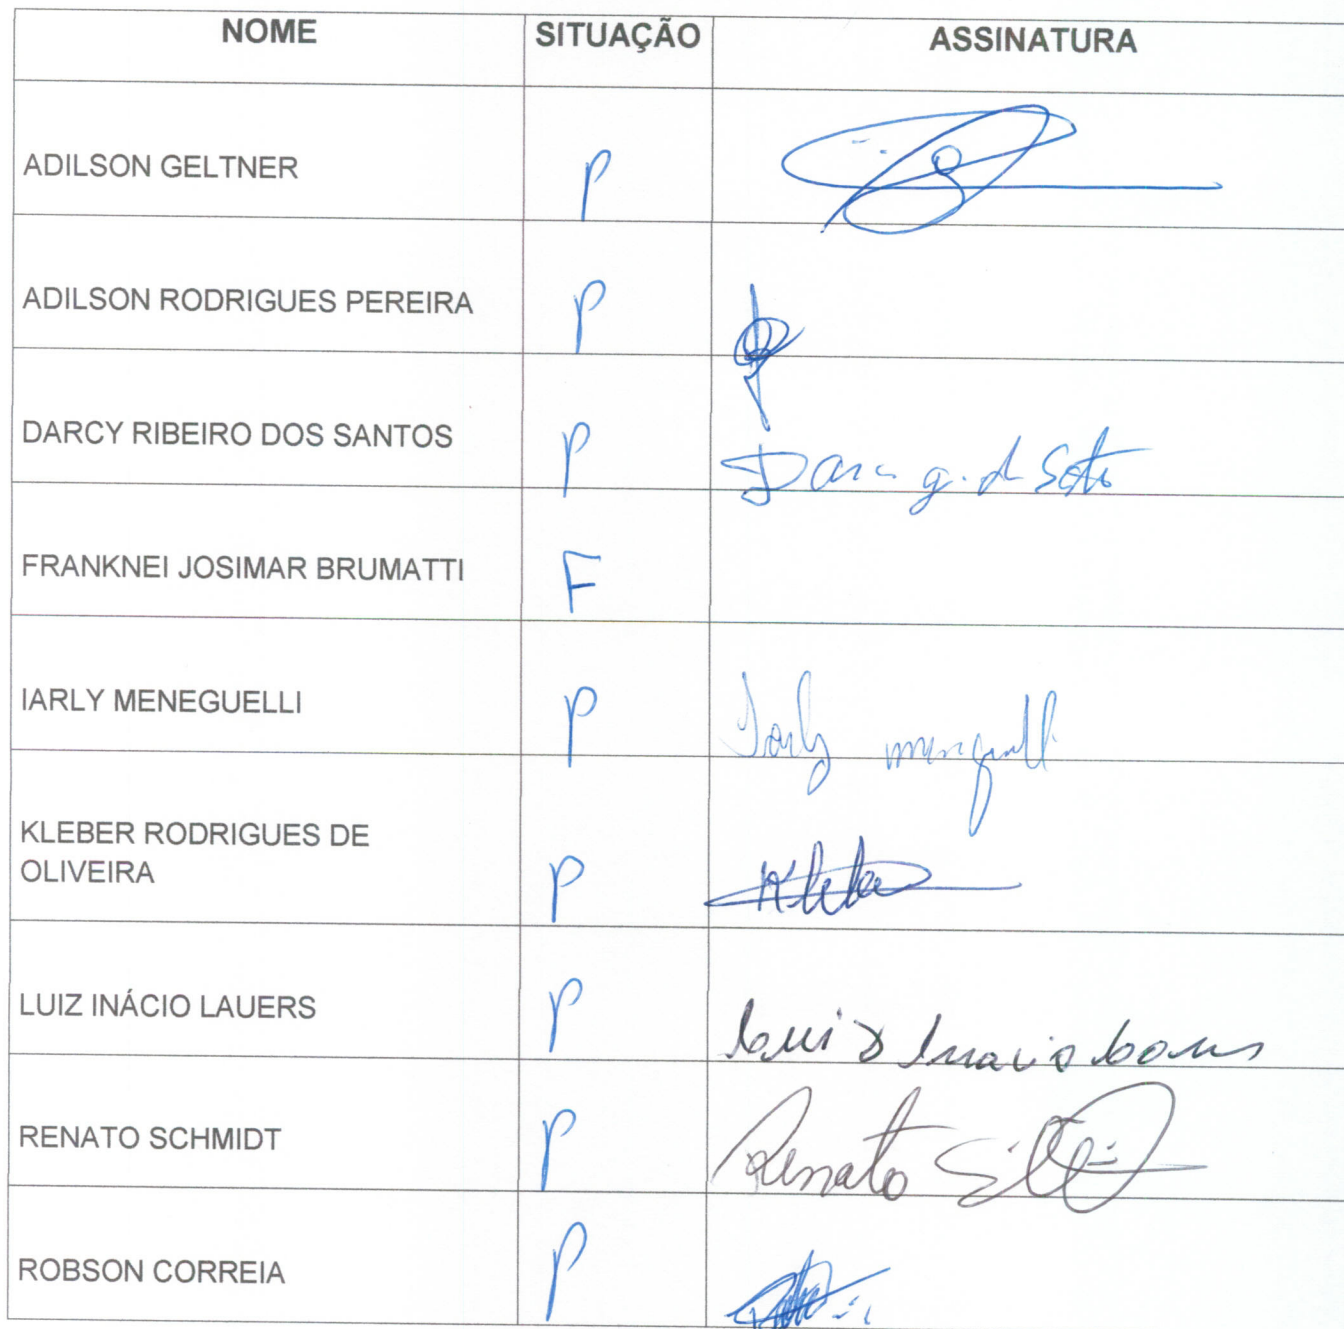 NOME SITUAÇÃO ASSINATURA
ADILSON GELTNER P
ADILSON RODRIGUES PEREIRA P
DARCY RIBEIRO DOS SANTOS P
FRANKNEI JOSIMAR BRUMATTI F
IARLY MENEGUELLI P Iarly
KLEBER RODRIGUES DE
OLIVEIRA P Kleber
LUIZ INÁCIO LAUERS P
RENATO SCHMIDT P Renato
ROBSON CORREIA P